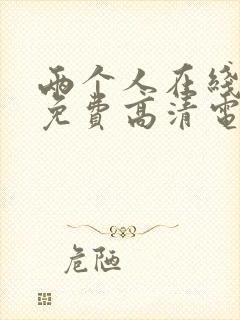 两个人在线
免费高清电
危陋